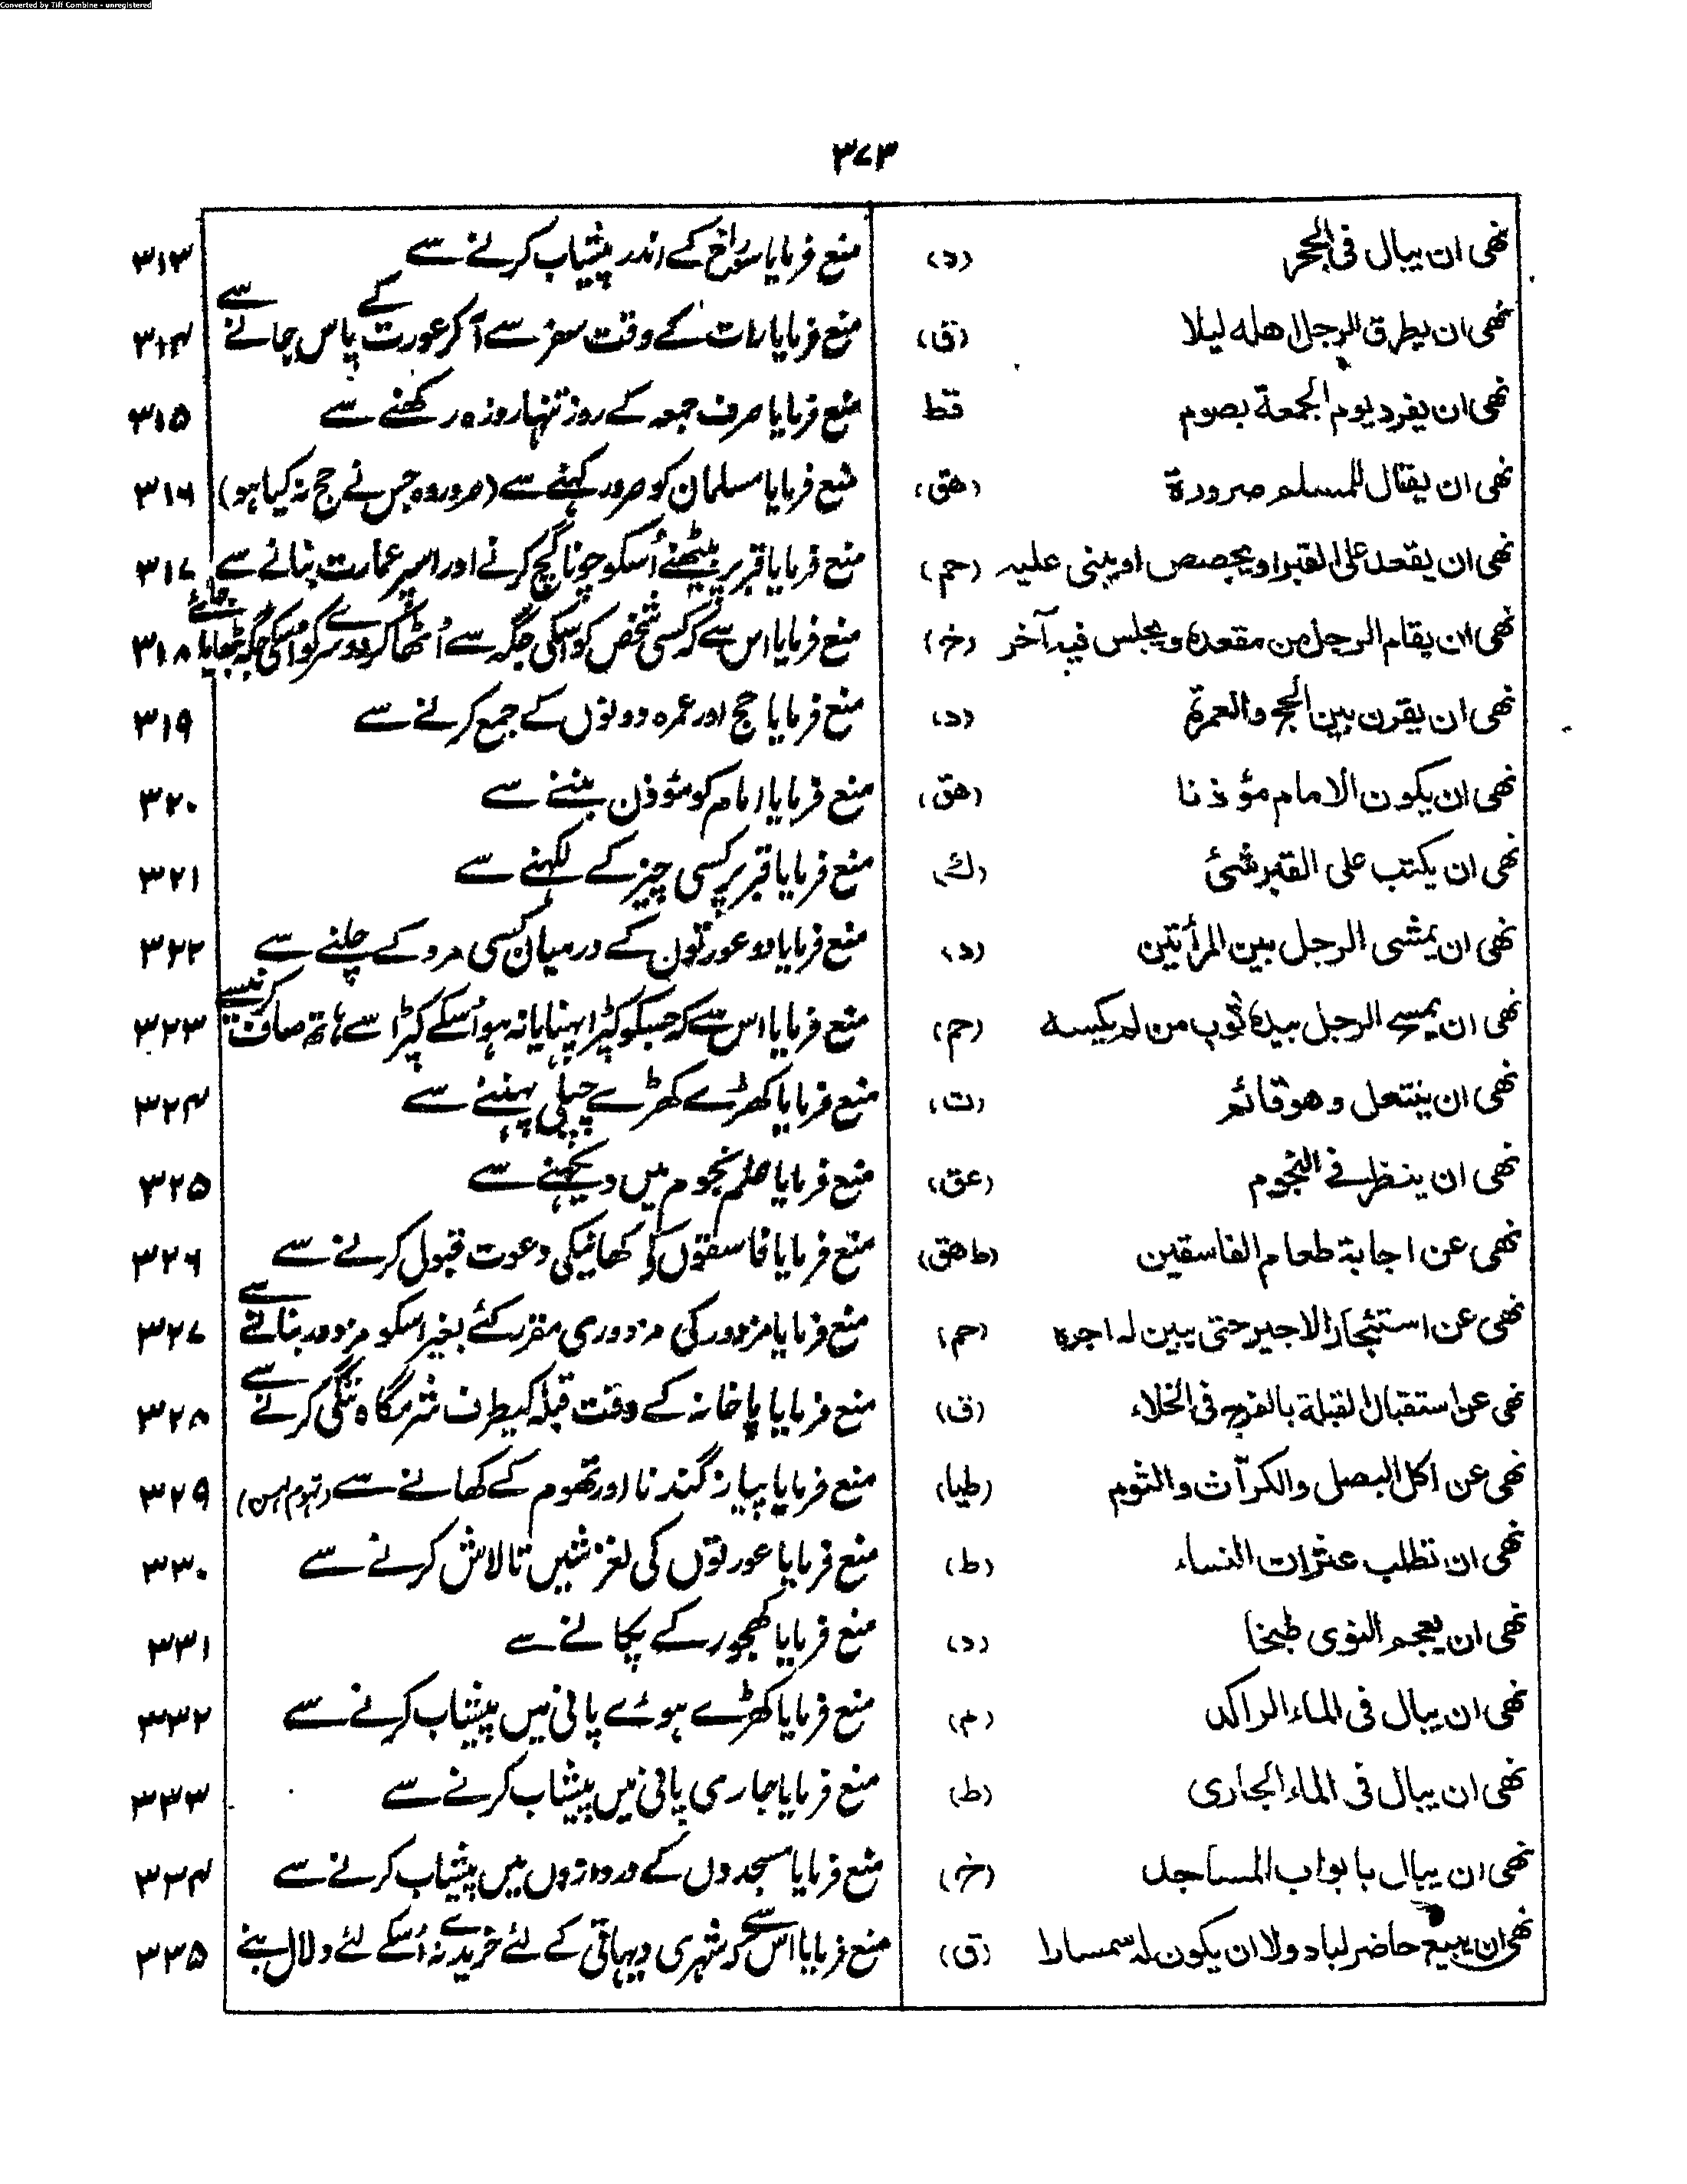 Converted by Tiff Combine - unregistered
۳۷۳
نھی ان یبال فی الجحر (د) منع فرمایا سوراخ کے اندر پیشاب کرنے سے ۳۱۳
نھی ان یطرق الرجل اھلہ لیلا (ق) منع فرمایا رات کے وقت سفر سے آکر عورت کے پاس جانے سے ۳۱۴
نھی ان یفرد یوم الجمعة بصوم قط منع فرمایا صرف جمعہ کے روز تنہا روزہ رکھنے سے ۳۱۵
نھی ان یقال للمسلم صرورة (ھق) منع فرمایا مسلمان کو صرور کہنے سے (صرورہ جس نے حج نہ کیا ہو) ۳۱۶
نھی ان یقعد علی القبر او یجصص او یبنی علیہ (حم) منع فرمایا قبر پر بیٹھنے اُسکو چونا گچ کرنے اور اسپر عمارت بنانے سے ۳۱۷
نھی ان یقام الرجل من مقعدہ و یجلس فیہ آخر (خ) منع فرمایا اس سے کہ کسی شخص کو اسکی جگہ سے اُٹھا کر دوسرے کو اُسکی جگہ بٹھایا جائے ۳۱۸
نھی ان یقرن بین الحج والعمرة (د) منع فرمایا حج اور عمرہ دونوں کے جمع کرنے سے ۳۱۹
نھی ان یکون الامام مؤذنا (ھق) منع فرمایا امام کو مؤذن بننے سے ۳۲۰
نھی ان یکتب علی القبر شئ (ك) منع فرمایا قبر پر کسی چیز کے لکہنے سے ۳۲۱
نھی ان یمشی الرجل بین المرأتین (د) منع فرمایا دو عورتوں کے درمیان کسی مرد کے چلنے سے ۳۲۲
نھی ان یمسح الرجل بیدہ ثوب من لم یکسہ (حم) منع فرمایا اس سے کہ جسکو کپڑا پہنایا نہ ہو اُسکے کپڑا سے ہاتھ صاف کرنیسے ۳۲۳
نھی ان ینتعل وھو قائم (ت) منع فرمایا کھڑے کھڑے چپلی پہننے سے ۳۲۴
نھی ان ینظر فے النجوم (عق) منع فرمایا علم نجوم میں دیکہنے سے ۳۲۵
نھی عن اجابة طعام الفاسقین (ط ھق) منع فرمایا فاسقوں کے کھانیکی دعوت قبول کرنے سے ۳۲۶
نھی عن استئجار الاجیر حتی یبین لہ اجرہ (حم) منع فرمایا مزدور کی مزدوری مقرر کئے بغیر اسکو مزدور بنانے سے ۳۲۷
نھی عن استقبال القبلة بالفرج فی الخلاء (ق) منع فرمایا پاخانہ کے وقت قبلہ کیطرف شرمگاہ ننگی کرنے سے ۳۲۸
نھی عن اکل البصل والکرّاث والثوم (طیا) منع فرمایا پیاز گندنا اور تھوم کے کھانے سے (تہوم لہسن) ۳۲۹
نھی ان تطلب عثرات النساء (ط) منع فرمایا عورتوں کی لغزشیں تالاش کرنے سے ۳۳۰
نھی ان یعجم النوی طبخا (د) منع فرمایا کھجور کے پکانے سے ۳۳۱
نھی ان یبال فی الماء الراکد (م) منع فرمایا کھڑے ہوئے پانی میں پیشاب کرنے سے ۳۳۲
نھی ان یبال فی الماء الجاری (ط) منع فرمایا جاری پانی میں پیشاب کرنے سے ۳۳۳
نھی ان یبال بابواب المساجد (خ) منع فرمایا مسجدوں کے دروازوں میں پیشاب کرنے سے ۳۳۴
نھی ان یبیع حاضر لباد ولا ان یکون لہ سمسارا (ق) منع فرمایا اس سے کہ شہری دیہاتی کے لئے خریدے نہ اُسکے لئے دلال بنے ۳۳۵